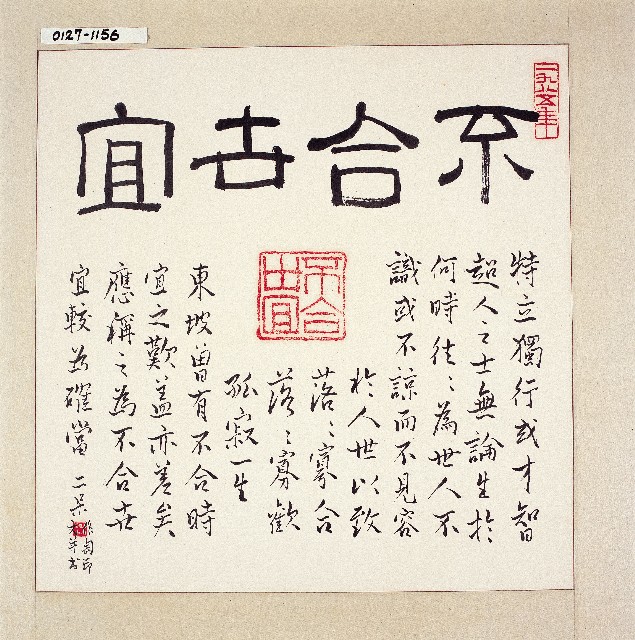 0127-1156
不合世宜
一九八五年
特立獨行或才智
超人之士無論生於
何時往々為世人不
識或不諒而不見容
於人世以致
落々寡合
落々寡歡
孤寂一生
不合世宜
東坡曾有不合時
宜之歎蓋亦差矣
應稱之為不合世
宜較為確當 二呆